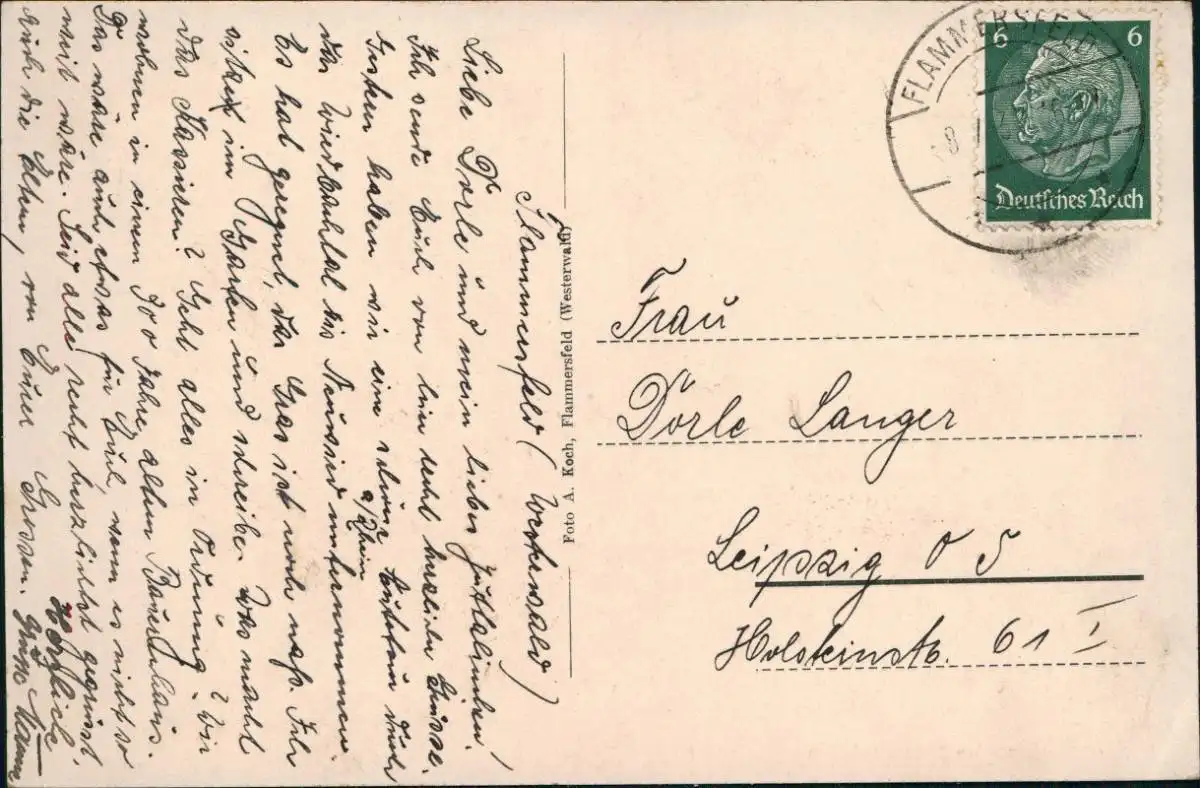 Flammersfeld (Westerwald)
Liebe Dorle und mein liebes
Ich sende Euch von hier recht herzliche Grüsse.
Gestern haben wir eine schöne Autotour durch
das Wiedbachtal bis Neuwied a/Rhein unternommen.
Es hat geregnet, das Gras ist noch naß. Ich
sitze im Garten und schreibe. Was macht
das Kassieren? Geht alles in Ordnung? Wir
wohnen in einem 300 Jahre altem Bauernhaus.
Das wäre auch etwas für Euch, wenn es nicht so
weit wäre. Seid alle recht herzlichst gegrüsst,
auch die Eltern, von Eurer Grossen.
Herzliche
Grüße Mama
Foto A. Koch, Flammersfeld (Westerwald)
FLAMMERSFELD
6 6
Deutsches Reich
Frau
Dorle Langer
Leipzig O 5
Holsteinstr. 61 I